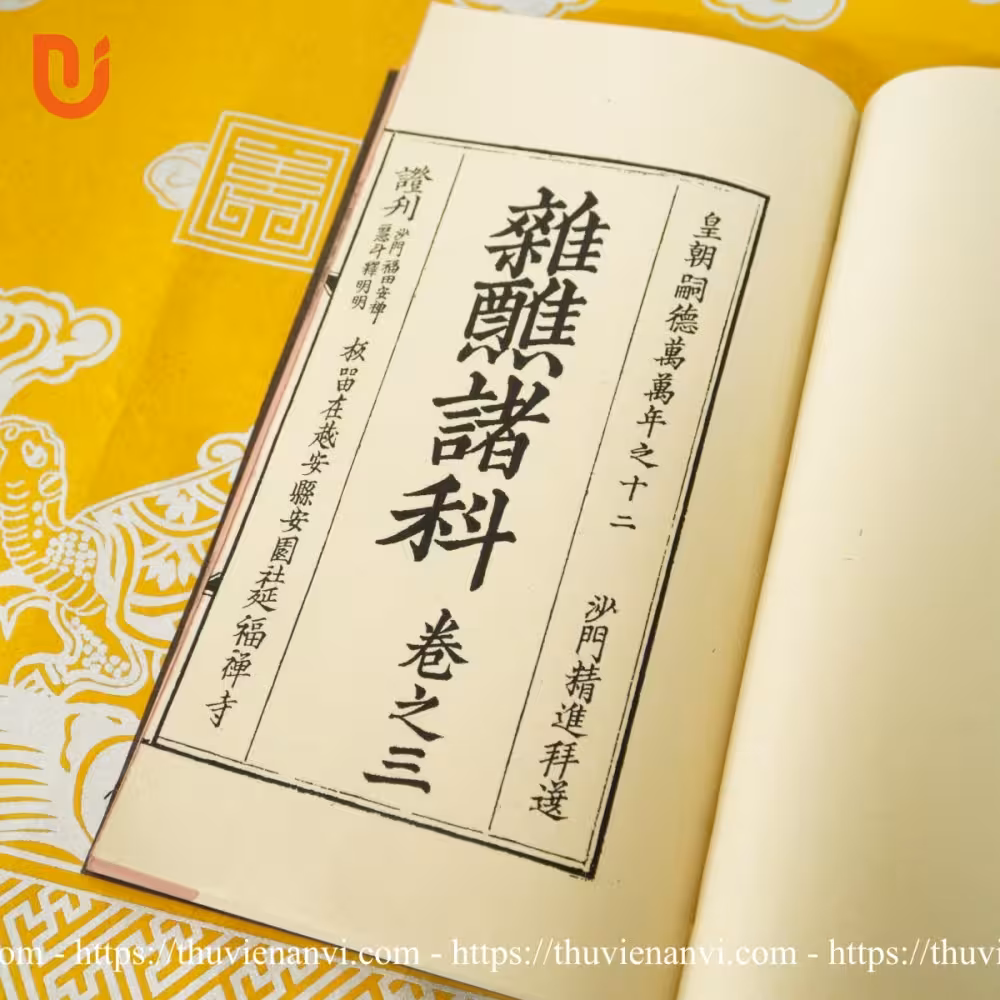 皇朝嗣德萬萬年之十二 沙門精進拜選
雜醮諸科 卷之三
證刋 沙門福田安禅
慧斗釋明明
板畱在越安縣安園社延福禅寺
.com - https://thuvienanvi.com - https://thuvienanvi.com - https://thuvi